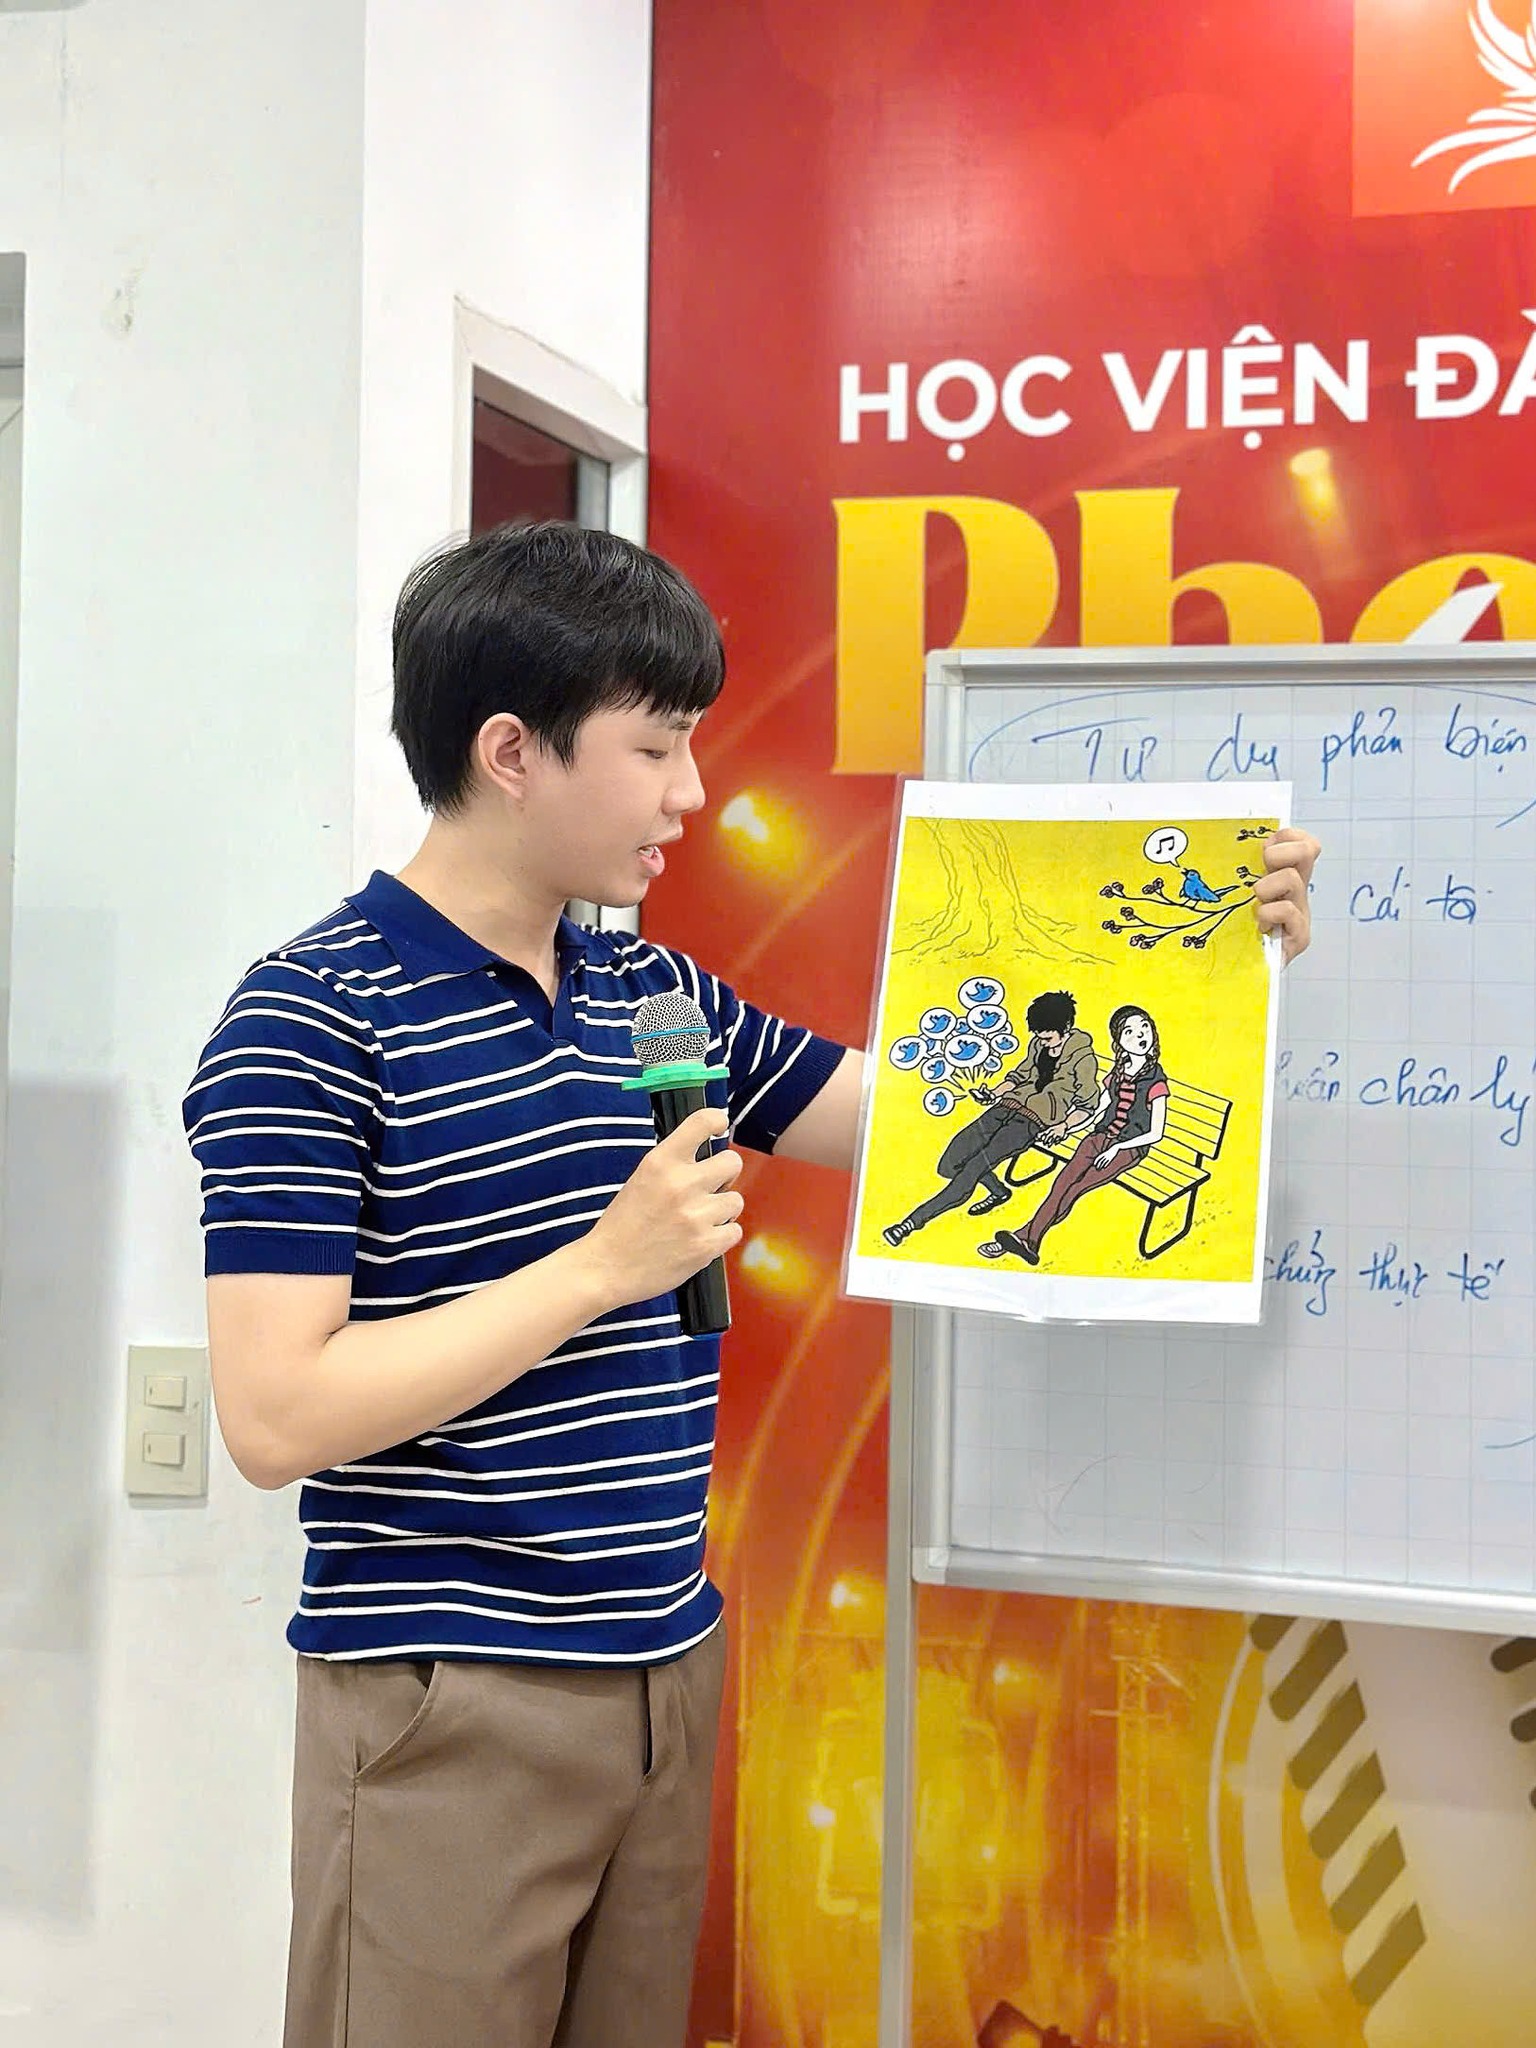 HỌC VIỆN
Tư duy phản biện
cái tôi
chân lý
chứng thực tế